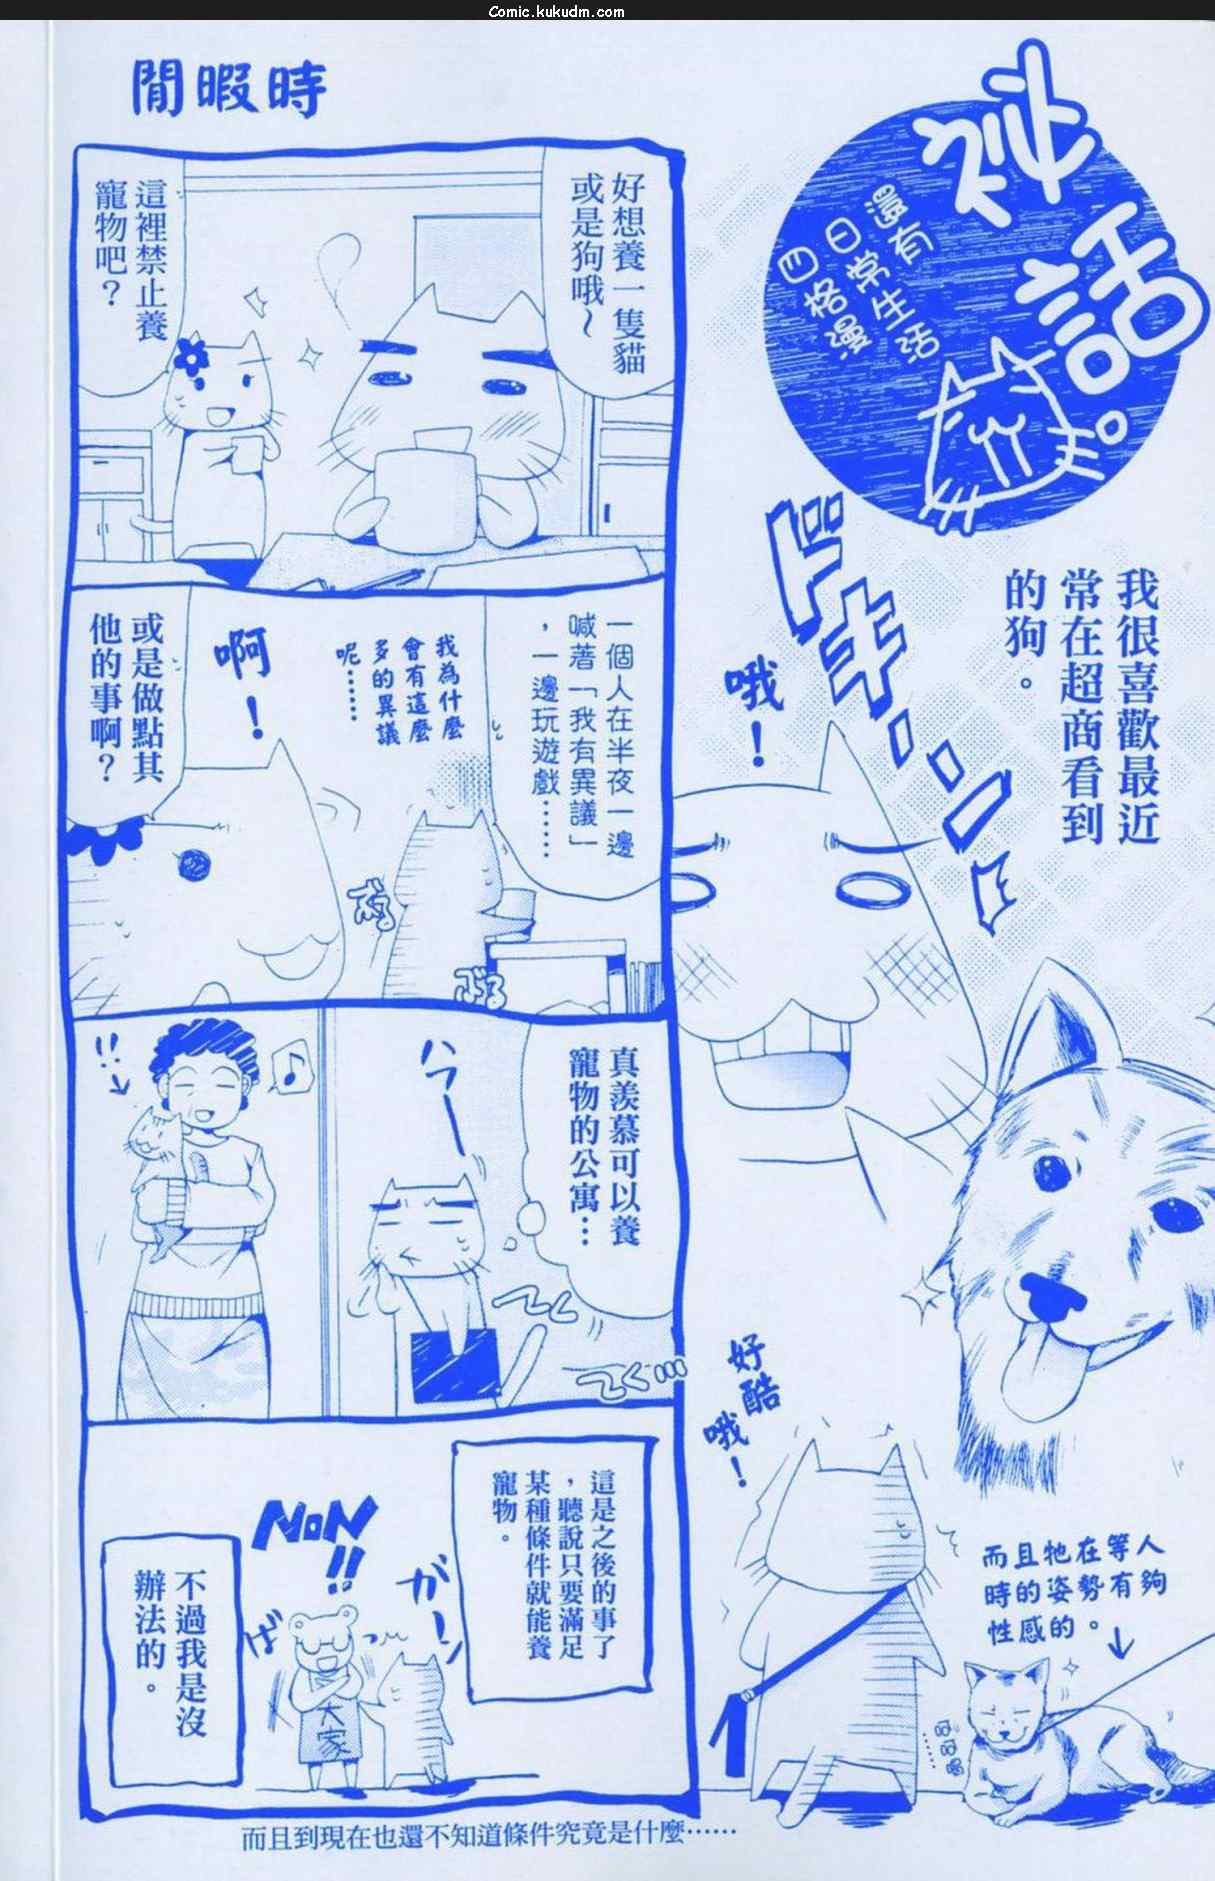 Comic.kukudm.com
祕話。
還有
日常生活
四格漫
我很喜歡最近
常在超商看到
的狗。
ドキーン
哦！
好酷
哦！
而且牠在等人
時的姿勢有夠
性感的。
呵呵
閒暇時
好想養一隻貓
或是狗哦～
這裡禁止養
寵物吧？
一個人在半夜一邊
喊著「我有異議」
，一邊玩遊戲……
我為什麼
會有這麼
多的異議
呢……
啊！
或是做點其
他的事啊？
ぶる
ぶる
真羨慕可以養
寵物的公寓…
ハァー
てく
てく…
!!
這是之後的事了
，聽說只要滿足
某種條件就能養
寵物。
ガーン
NON!!
ば
大家
不過我是沒
辦法的。
而且到現在也還不知道條件究竟是什麼……